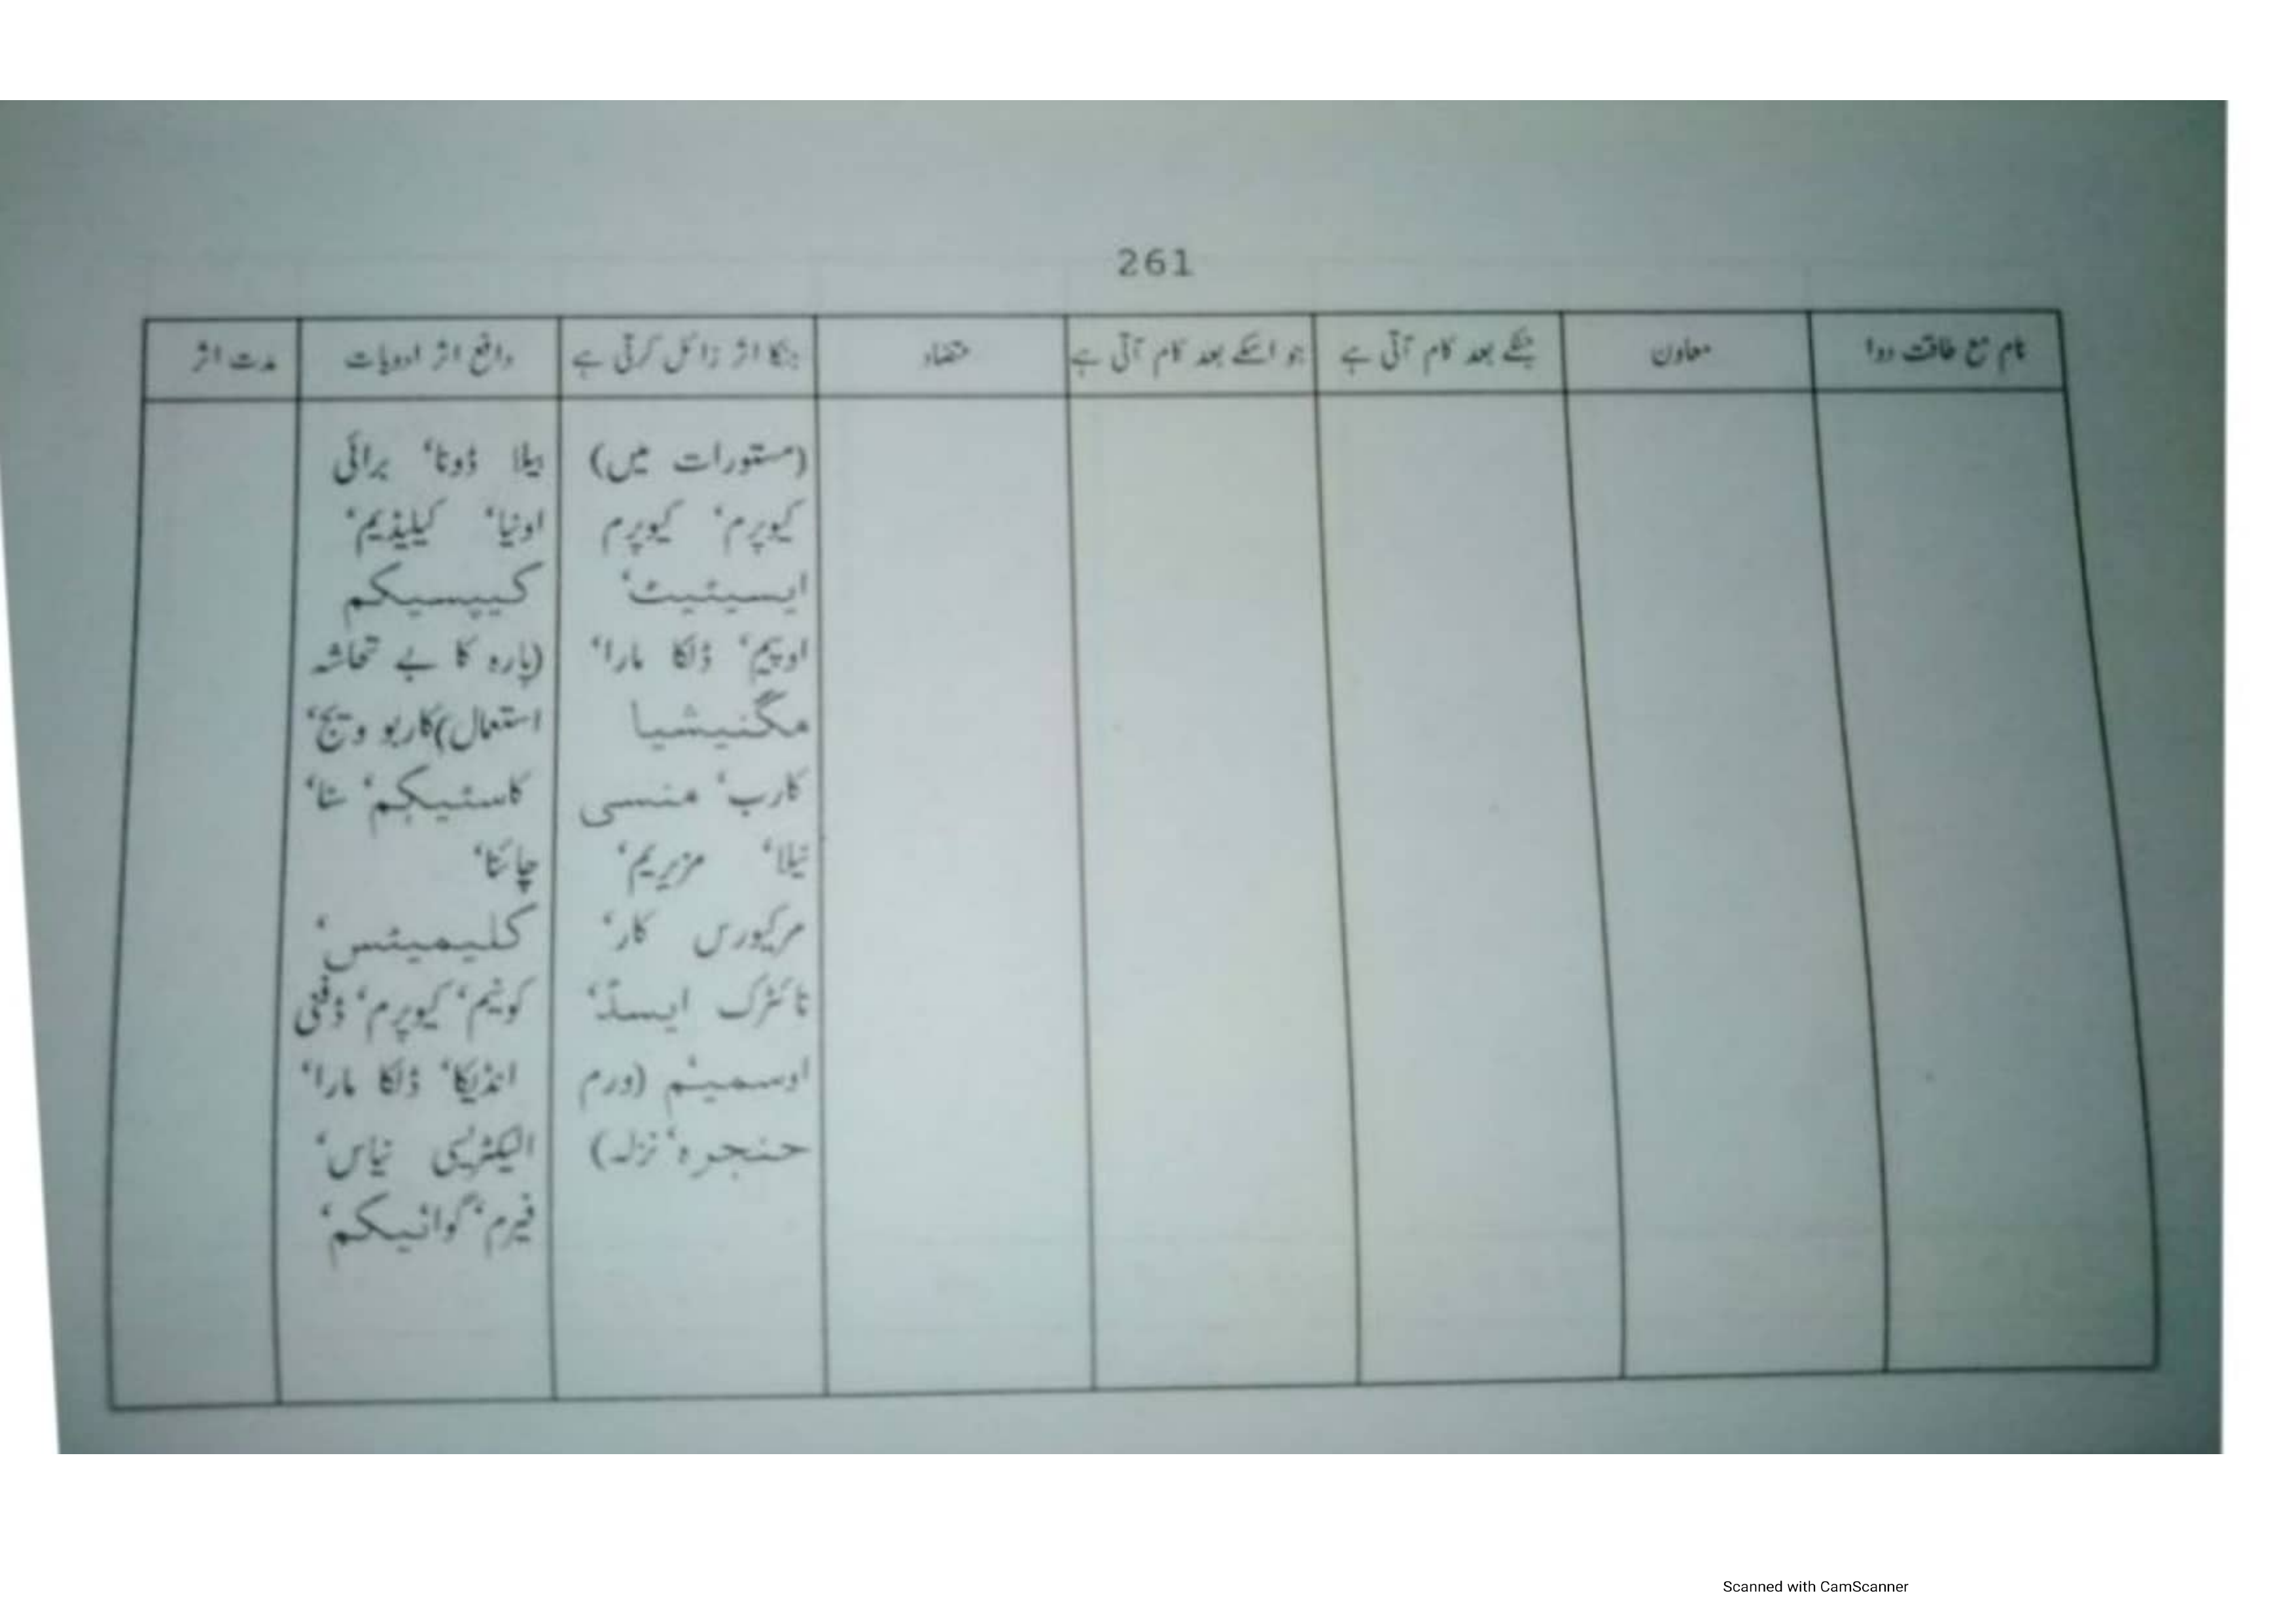 261
نام مع طاقت دوا | معاون | جنکے بعد کام آتی ہے | جو اسکے بعد کام آتی ہے | متضاد | جنکا اثر زائل کرتی ہے | دافع اثر ادویات | مدت اثر
(مستورات میں)
کیوپرم‘ کیوپرم
ایسیٹیٹ‘
اوپیم‘ ڈلکا مارا‘
مگنیشیا
کارب‘ منسی
نیلا‘ مزیریم‘
مرکیورس کار‘
نائٹرک ایسڈ‘
اوسمیئم (ورم
حنجرہ‘ نزلہ)
بیلا ڈونا‘ برائی
اونیا‘ کیلیڈیم‘
کیپسیکم
(پارہ کا بے تحاشہ
استعمال) کاربو ویج‘
کاسٹیکم‘ سنا‘
چائنا‘
کلیمیٹس‘
کونیم‘ کیوپرم‘ ڈفنی
انڈیکا‘ ڈلکا مارا‘
الیکٹریسی نیاس‘
فیرم‘ گوائیکم‘
Scanned with CamScanner